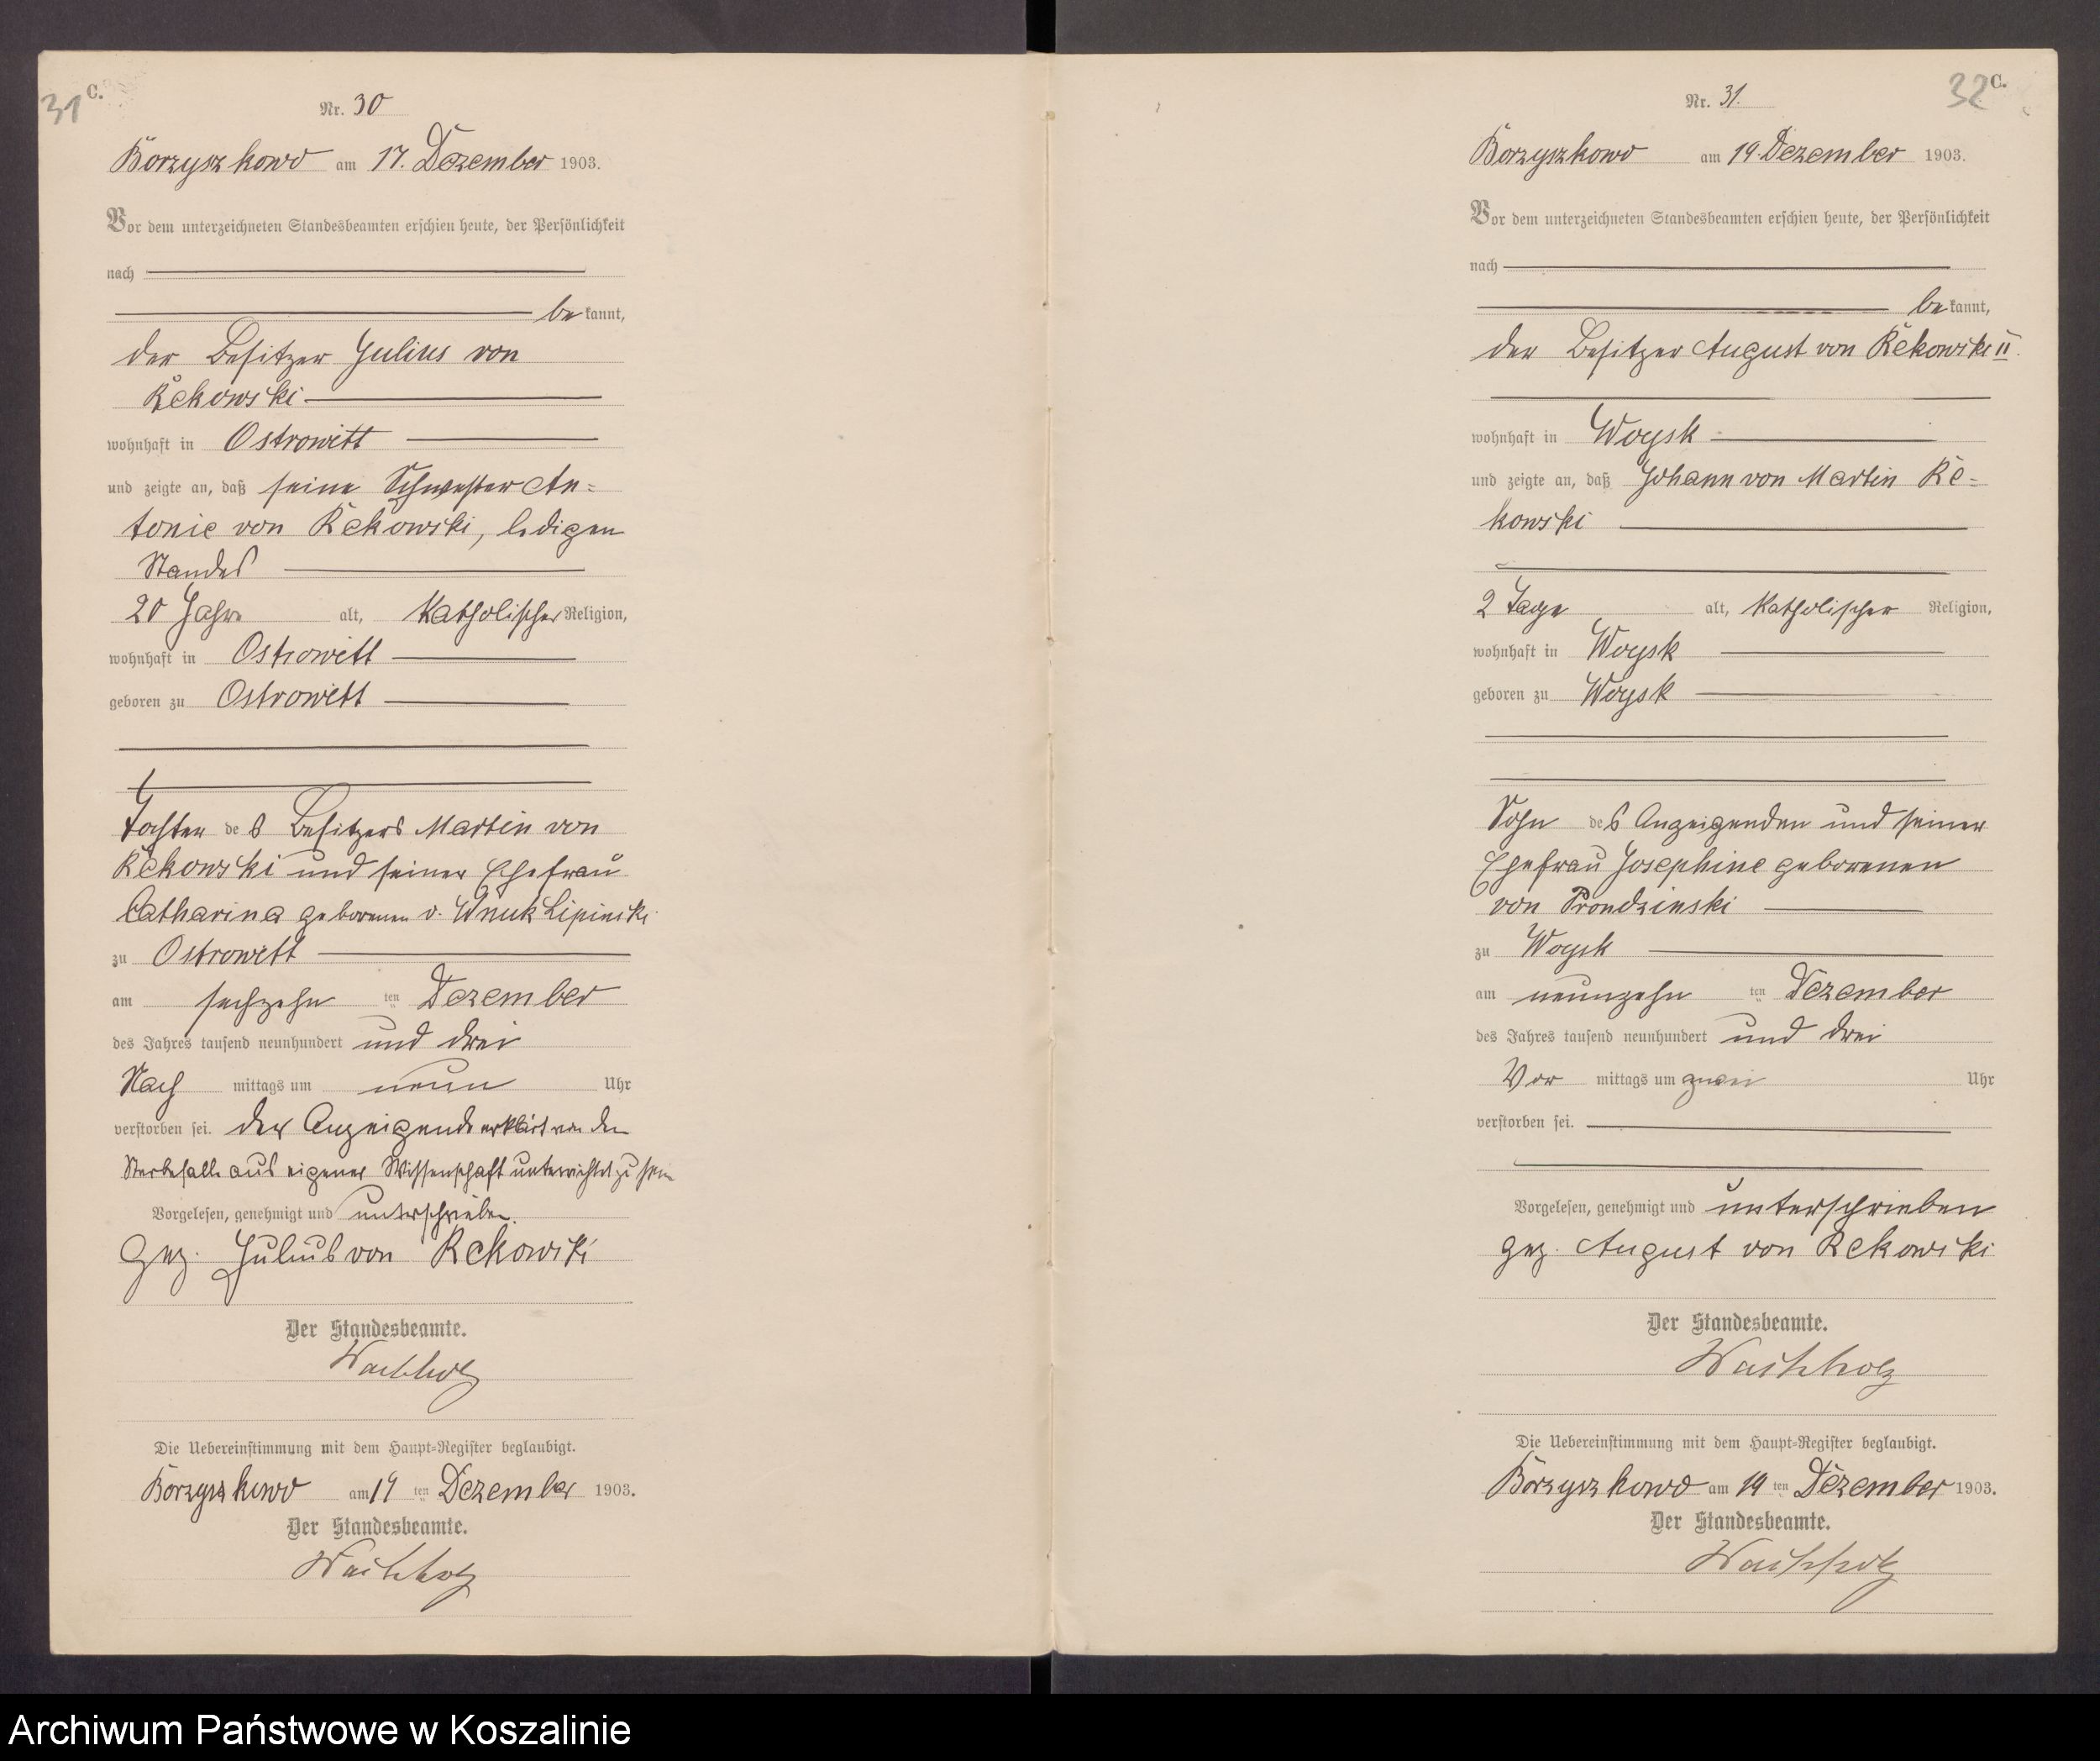 31
C.
Nr. 30
Borzyszkowo am 17. Dezember 1903.
Vor dem unterzeichneten Standesbeamten erschien heute, der Persönlichkeit
nach
bekannt,
der Besitzer Julius von
Rekowski
wohnhaft in Ostrowitt
und zeigte an, daß seine Schwester An=
tonie von Rekowski, ledigen
Standes
20 Jahre alt, katholischer Religion,
wohnhaft in Ostrowitt
geboren zu Ostrowitt
Tochter des Besitzers Martin von
Rekowski und seiner Ehefrau
Catharina geborenen v. Wnuk Lipinski
zu Ostrowitt
am sechzehnten Dezember
des Jahres tausend neunhundert und drei
Nachmittags um neun Uhr
verstorben sei. Der Anzeigende erklärt von dem
Sterbefalle aus eigener Wissenschaft unterrichtet zu sein
Vorgelesen, genehmigt und unterschrieben.
gez. Julius von Rekowski
Der Standesbeamte.
Wachholz
Die Uebereinstimmung mit dem Haupt=Register beglaubigt.
Borzyszkowo am 19ten Dezember 1903.
Der Standesbeamte.
Wachholz
32
C.
Nr. 31.
Borzyszkowo am 19. Dezember 1903.
Vor dem unterzeichneten Standesbeamten erschien heute, der Persönlichkeit
nach
bekannt,
der Besitzer August von Rekowski II.
wohnhaft in Woysk
und zeigte an, daß Johann von Martin Re=
kowski
2 Tage alt, katholischer Religion,
wohnhaft in Woysk
geboren zu Woysk
Sohn des Anzeigenden und seiner
Ehefrau Josephine geborenen
von Prondzinski
zu Woysk
am neunzehnten Dezember
des Jahres tausend neunhundert und drei
Vormittags um zwei Uhr
verstorben sei.
Vorgelesen, genehmigt und unterschrieben
gez. August von Rekowski
Der Standesbeamte.
Wachholz
Die Uebereinstimmung mit dem Haupt=Register beglaubigt.
Borzyszkowo am 19ten Dezember 1903.
Der Standesbeamte.
Wachholz
Archiwum Państwowe w Koszalinie